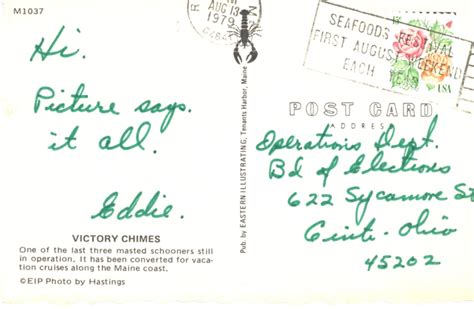 M1037
AUG 13
1979
SEAFOODS FESTIVAL
FIRST AUGUST WEEKEND
EACH YEAR
USA
Hi.
Picture says
it all.
Eddie.
VICTORY CHIMES
One of the last three masted schooners still
in operation. It has been converted for vaca-
tion cruises along the Maine coast.
©EIP Photo by Hastings
Pub. by EASTERN ILLUSTRATING, Tenants Harbor, Maine
POST CARD
ADDRESS
Operations Dept.
Bd of Elections
622 Sycamore St
Cinti. Ohio
45202